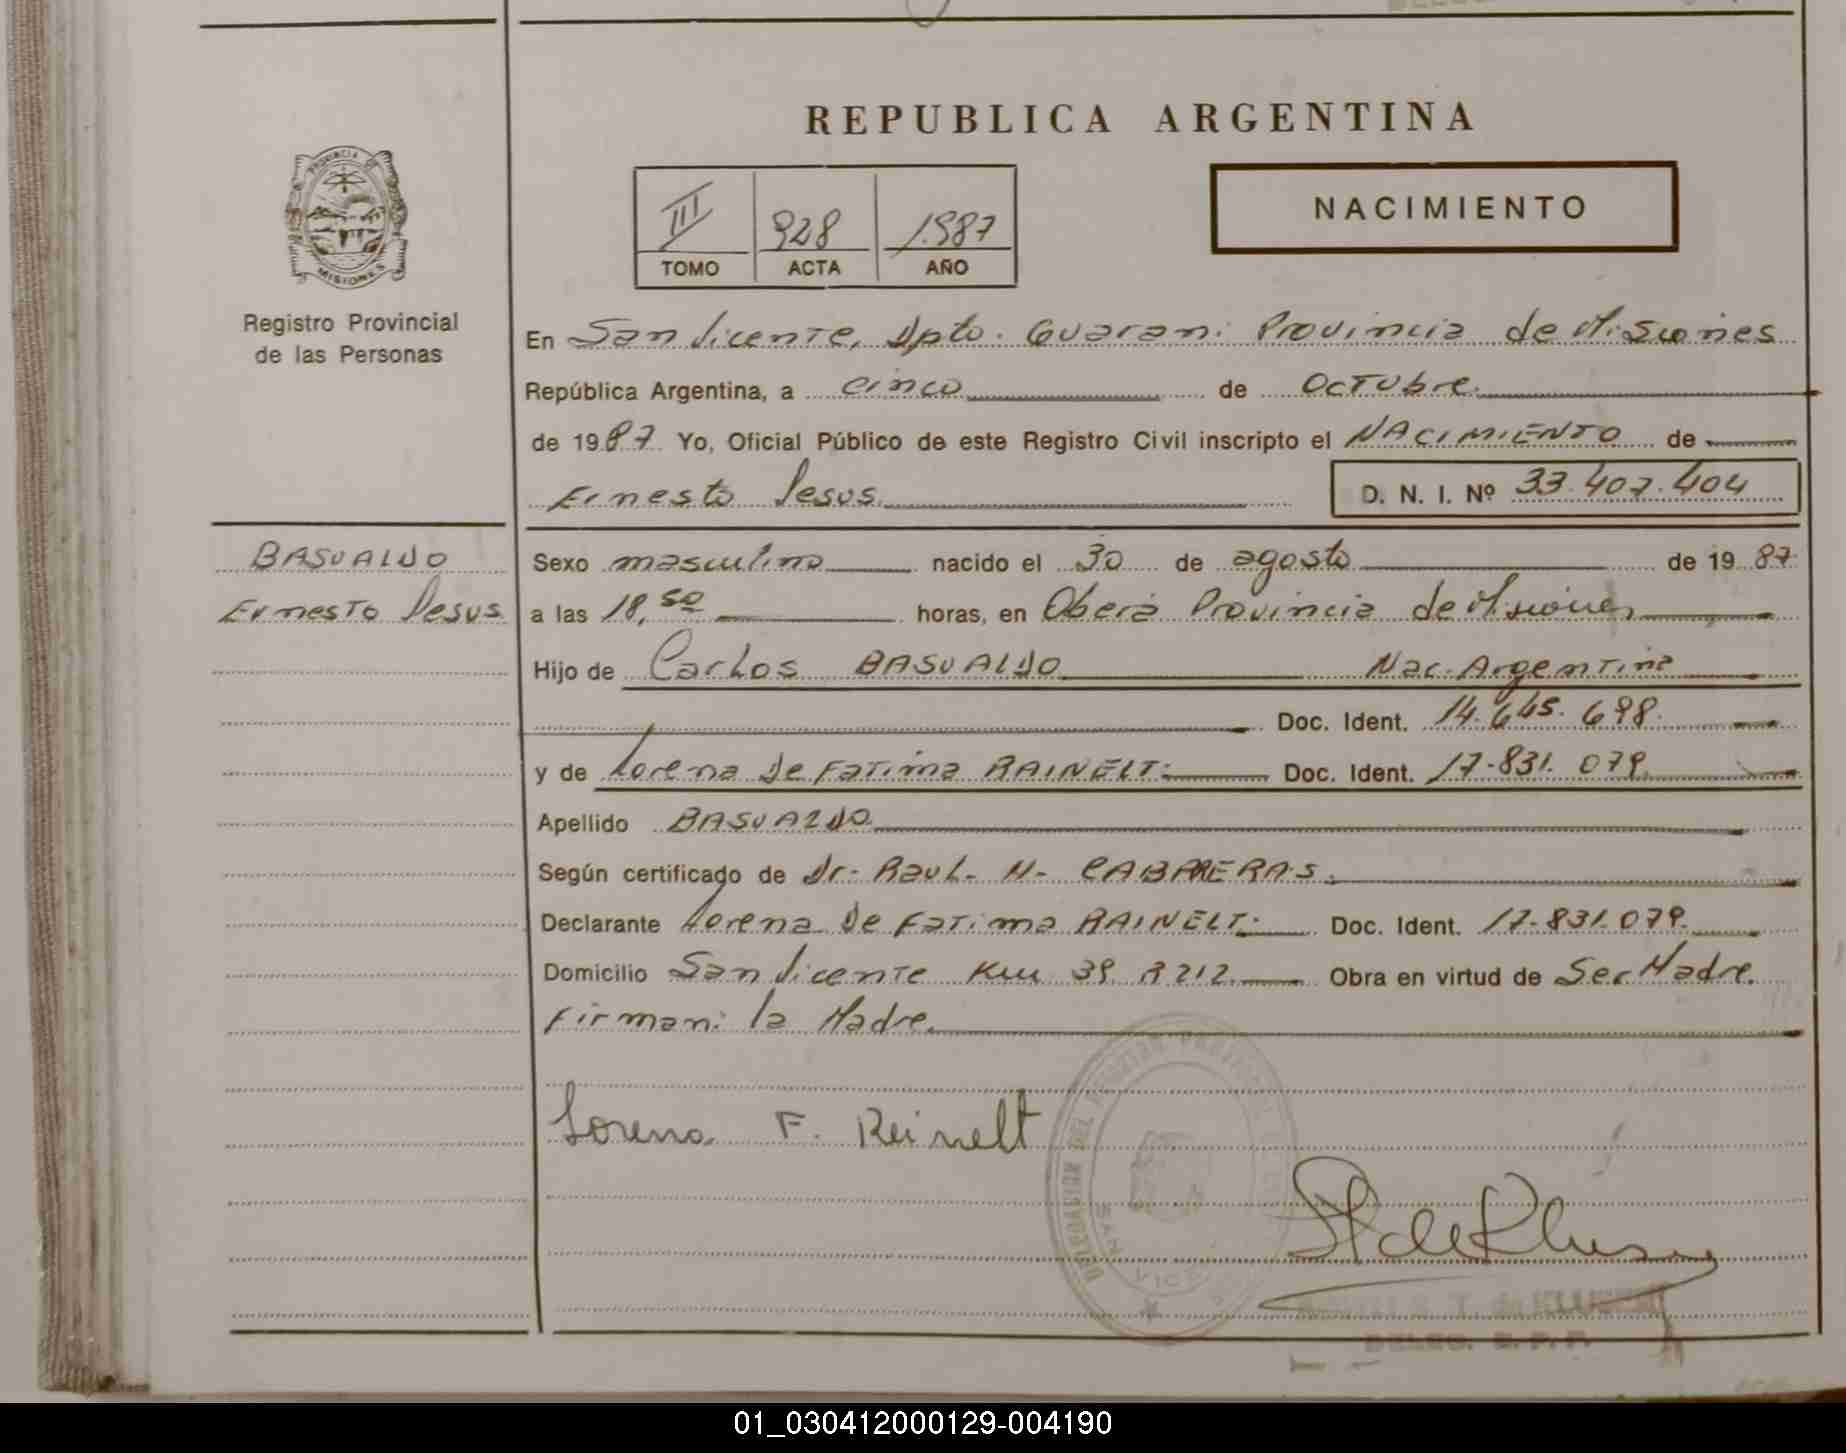 REPUBLICA ARGENTINA
PROVINCIA DE
MISIONES
Registro Provincial
de las Personas
III 928 1987
TOMO ACTA AÑO
NACIMIENTO
En San Vicente, Dpto. Guarani Provincia de Misiones
República Argentina, a cinco de Octubre
de 1987 Yo, Oficial Público de este Registro Civil inscripto el NACIMIENTO de
Ernesto Jesus
D. N. I. Nº 33.407.404
BASUALDO
Ernesto Jesus
Sexo masculino nacido el 30 de agosto de 1987
a las 18,50 horas, en Oberá Provincia de Misiones
Hijo de Carlos BASUALDO Nac. Argentina
Doc. Ident. 14.645.698.
y de Lorena De Fatima RAINELT. Doc. Ident. 17.831.079.
Apellido BASUALDO
Según certificado de Dr. Raul H. CABRERAS.
Declarante Lorena De Fatima RAINELT. Doc. Ident. 17.831.079.
Domicilio San Vicente Km 39 R 212. Obra en virtud de Ser Madre.
Firman: la Madre.
Lorena F. Reinelt
DELEGACION DEL
T. de KLUSKA
DELEG. R. P. P.
01_030412000129-004190